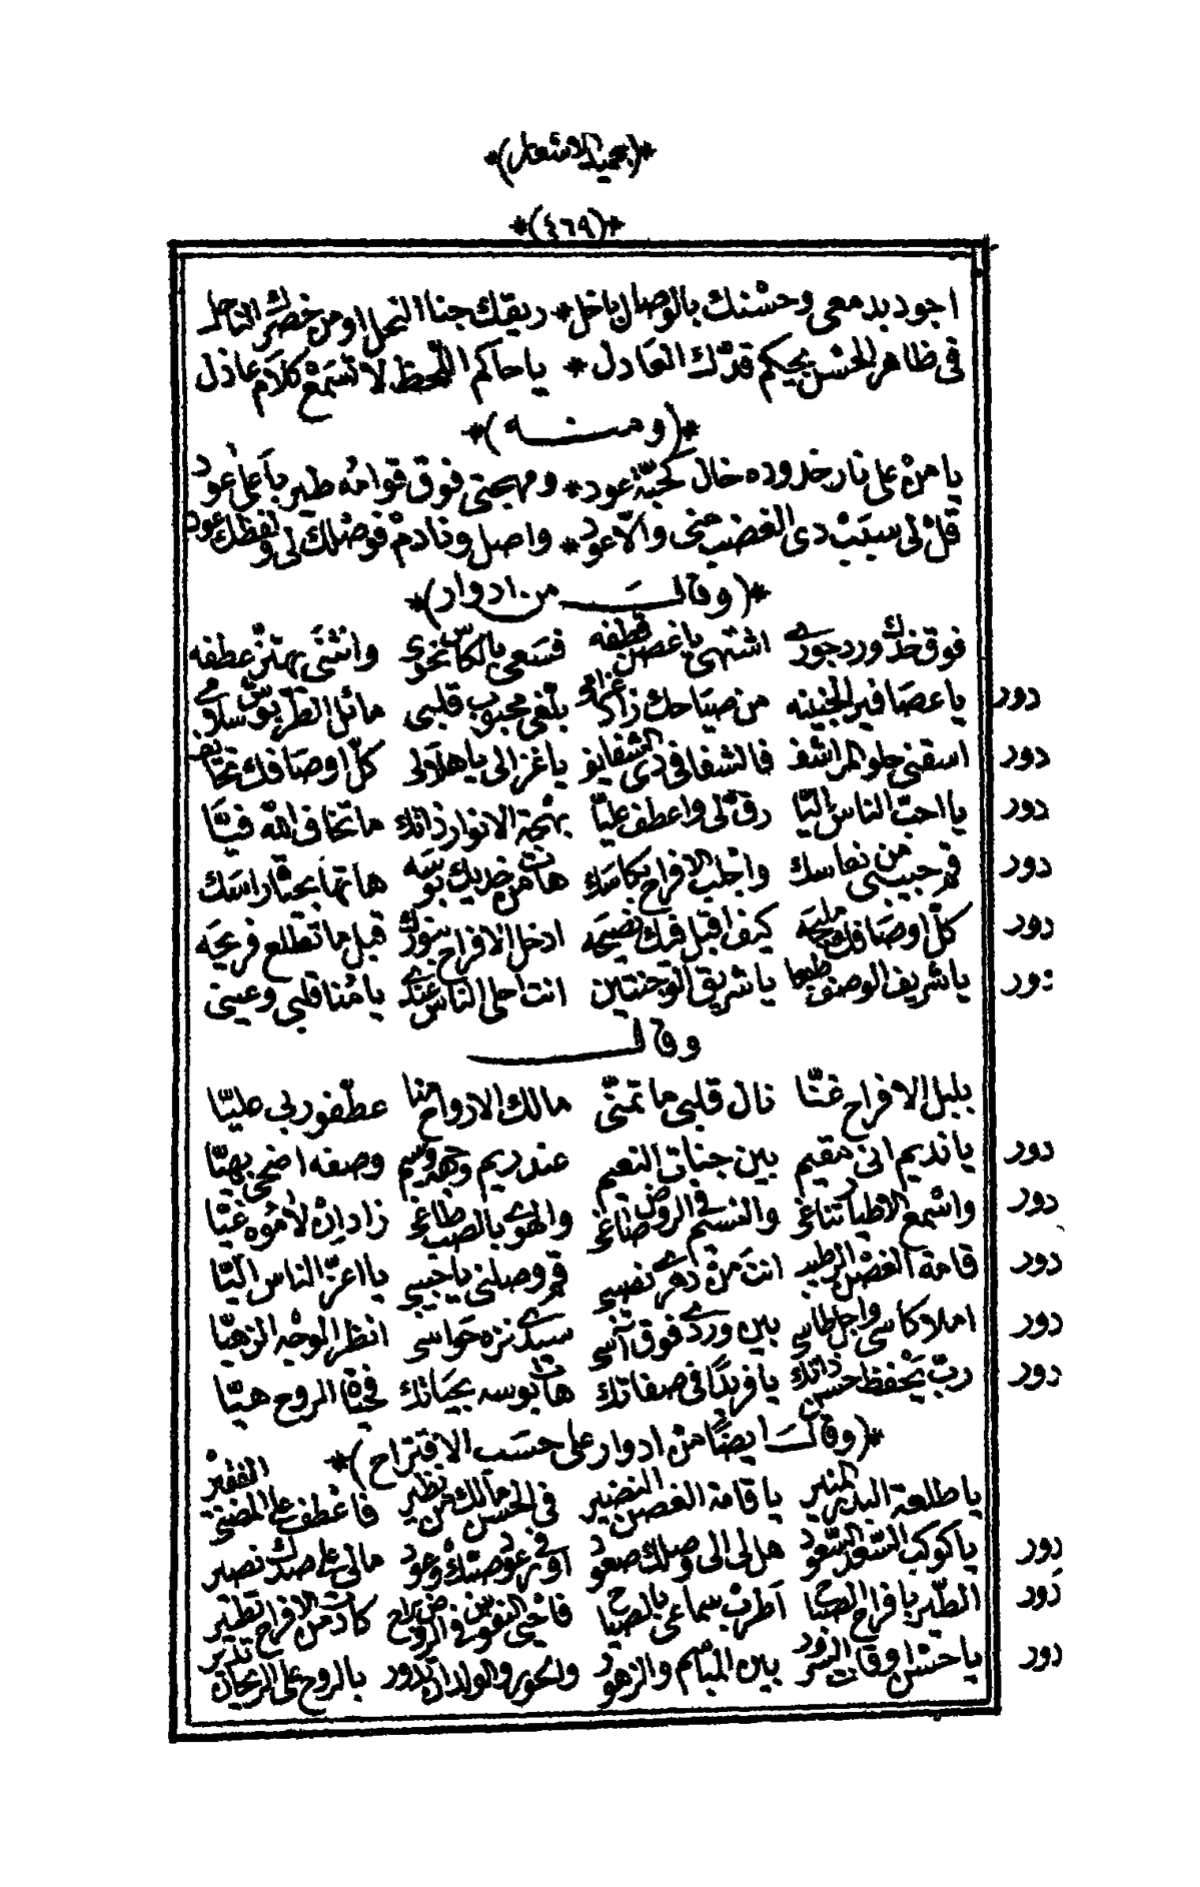 *(بجميل الاشعار)*
*(٤٦٩)*
اجود بدمعى وحسْنك بالوصال باخل * ريقك جنا النحل او من خصرك الناحل
فى ظاهر الحسْن يحيكم قدّك العَادل * يا حاكم اللّحظ لا تسَمعْ كلامَ عاذل
*(ومنه)*
يا منْ على نار خدوده خال كحبّة عود * ومهجتى فوق قوامُه طير باَعلى عود
قلْ لى سَبَبْ دى الغضب منّى والّا عود * واصل ونادمْ فوصْلك لى ولفظك عود
*(وقال من ادوار)*
فوق خدّك ورد جورى اشتهى يا غصن قطفه فسَعى بالكاسّ نحوى وانثنَى يهتزّ عطفه
دور يا عصَافير الجنينه من صيَاحك زاد غرامى بلّغى محبوب قلبى مائل الطربوش سلامى
دور اسقنى حلو المراشف فالشفا فى دى الشفايف يا غزالى يا هلالى كلّ اوصَافك تحايف
دور يا احبّ الناس اليّا رقّ لى واعطف عليّا بهْجة الانوار ذاتك ما تخاف الله فيّا
دور قم حبيبى من نعاسك واجلب الافراح بكاسك هات من خديك بوسَه هاتها بحيَاة راسَك
دور كلّ اوصَافك مليحَه كيف اقبل فيك نصيحَه ادخل الافراح بنورك قبل ما تطلع فريحَه
دور يا شريف الوصف طبعا يا شريق الوجنتين انت احلى الناس عندى يا مُنا قلبى وعينى
وقال
بلبل الافراح غنّا نال قلبى ما تمنّى مالك الارواح منا عطّفو ربى عليّا
دور يا نديم انى مقيم بين جنات النعيم عند ريم وجهه وسيم وصفه اضحى بهيّا
دور واسْمع الاطيار تناغى والنسيم فى الروض صاغى والهوى بالصب طاغى زاد انْ لامُوه غيّا
دور قامة الغصْن الرطيب انتَ منْ دهرى نصيبى قم وصلنى يا حبيبى يا اعزّ الناس اليّا
دور املا كاسى واجل طاسى بين وردى فوق آسى سيدى نزه حواسى انظر الوجه الزهيّا
دور ربّ يحْفظ حسن ذاتك يا فريدًا فى صفاتك هات بوسه بحيَاتك فجنا الروح هيّا
*(وقالَ ايضًا منْ ادوار على حسَب الاقتراح)*
يا طلعة البدر المنير يا قامة الغصن النضير فى الحسْن مَالك منْ نظير فاعْطف على المضنى الفقيرْ
دور يا كوكب السّعد السّعود هل لى الى وصلك صعود اوفى عوض صدّك وعود مالى على صدك نصير
دور الطّير بافراح الصبا اطربْ سماعى بالصبا فاحْيى النفوس فى الروض راح كادت من الافراح تطير
دور يا حسْن اوقات السرور بين المباسم والزهور والحور والولدان تدور بالروح على الريحان تدير